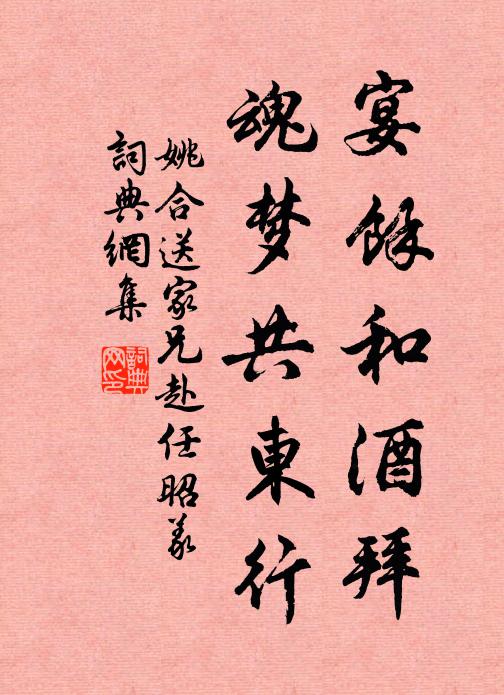 宴餘和酒拜
魂梦共東行
姚合送家兄赴任昭義
詞典網集
詞典
网印